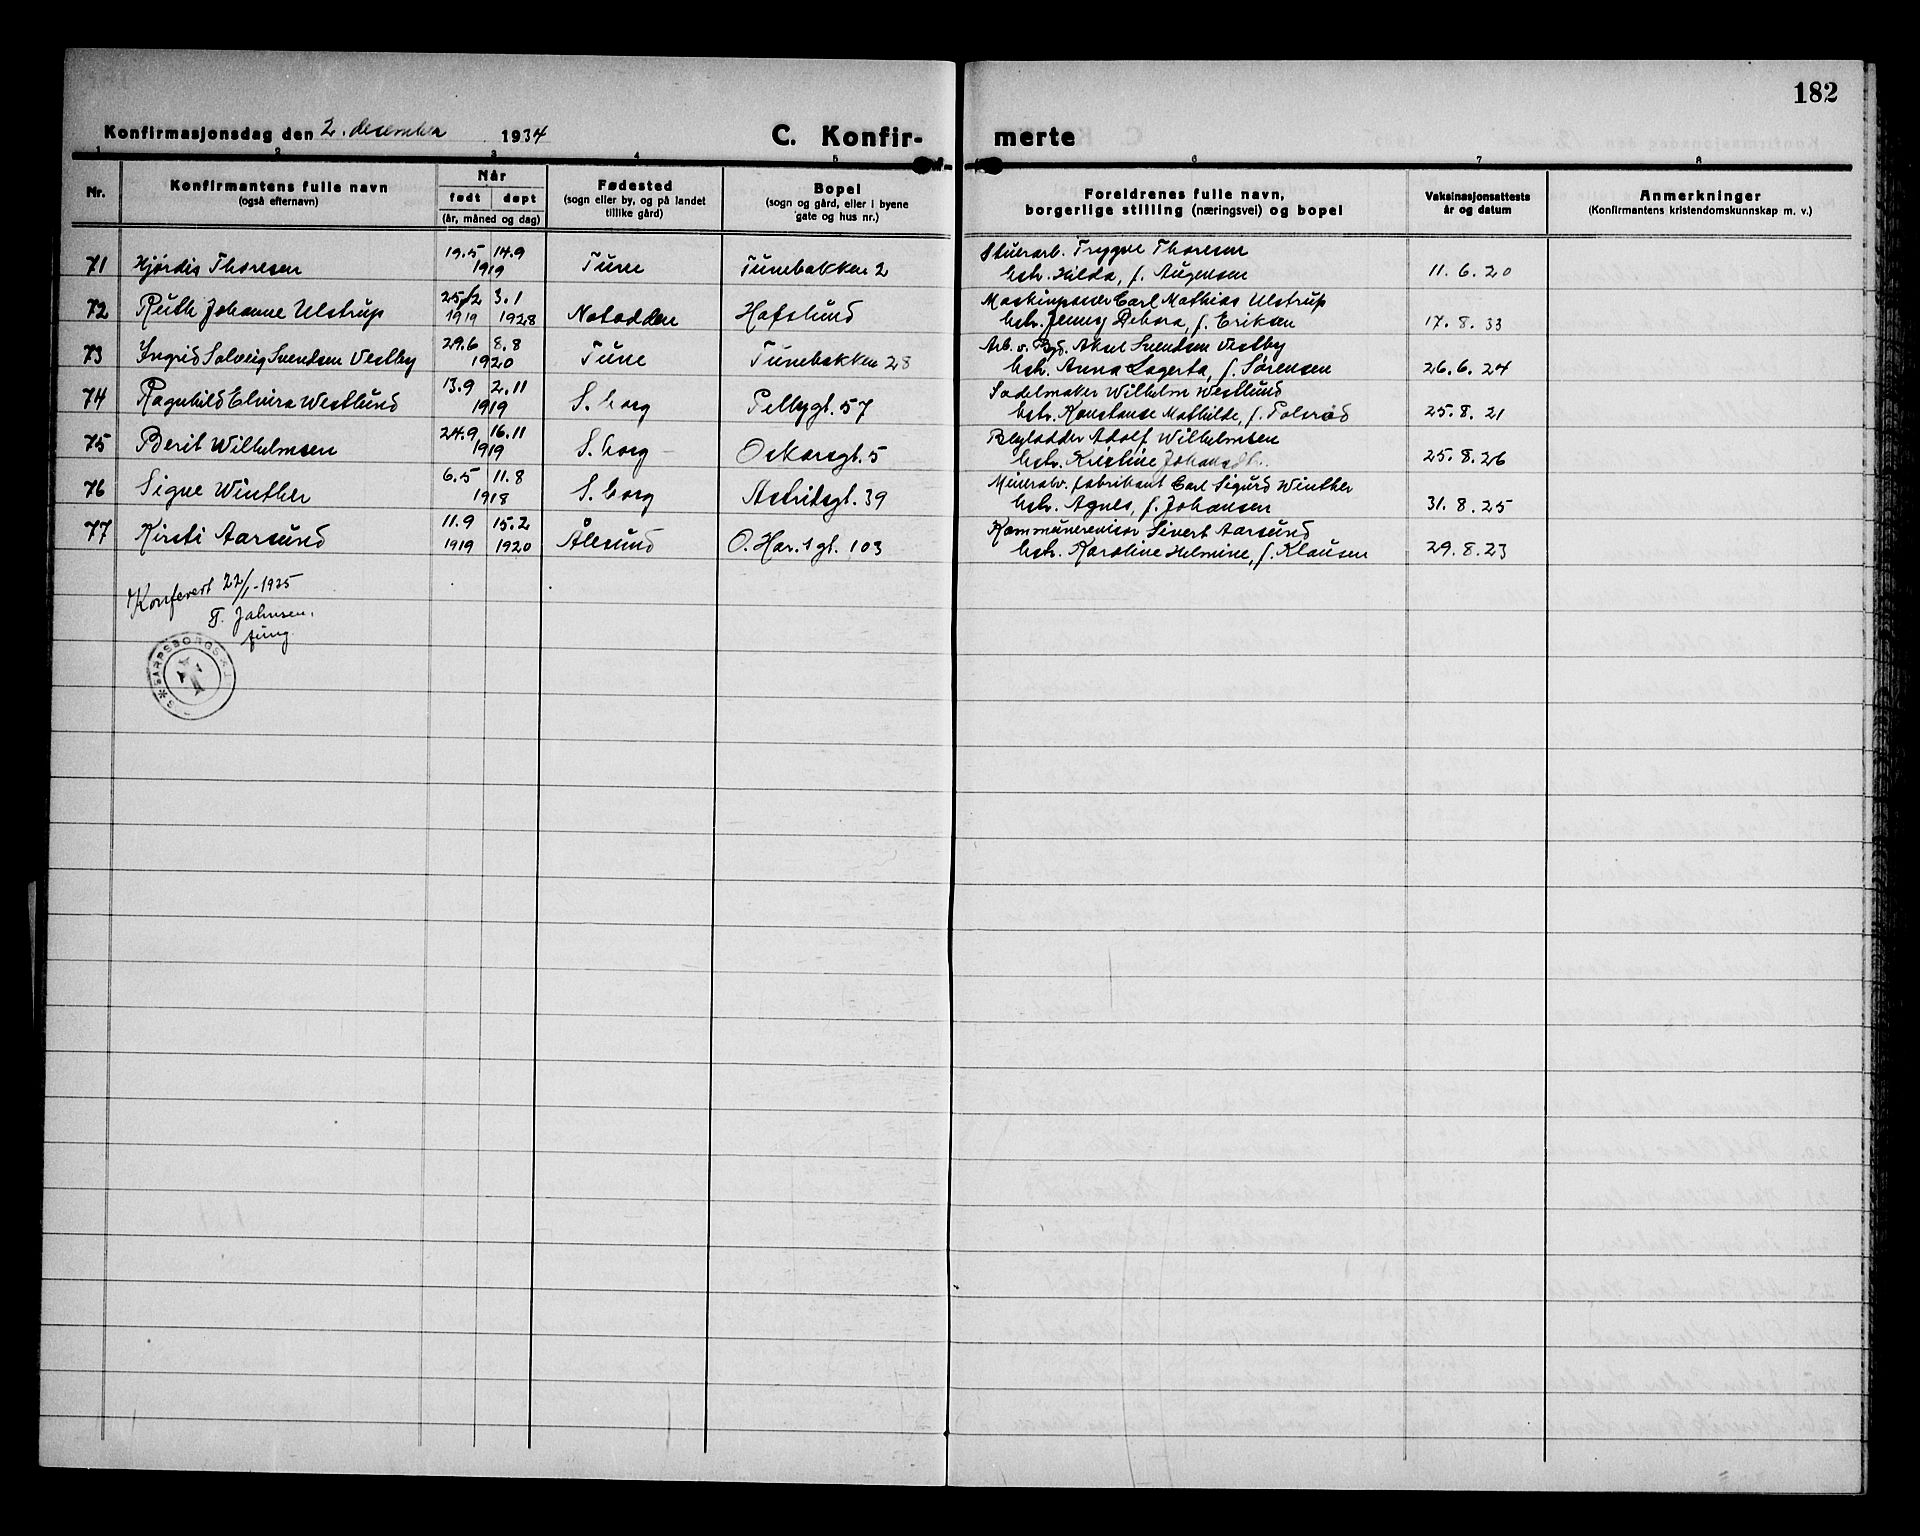 182
Konfirmasjonsdag den 2. desember 1934
C. Konfir- merte
1 2 3 4 5 6 7 8
Nr.
Konfirmantens fulle navn
(også efternavn)
Når
født døpt
(år, måned og dag)
Fødested
(sogn eller by, og på landet
tillike gård)
Bopel
(sogn og gård, eller i byene
gate og hus nr.)
Foreldrenes fulle navn,
borgerlige stilling (næringsvei) og bopel
Vaksinasjonsattests
år og datum
Anmerkninger
(Konfirmantens kristendomskunnskap m. v.)
19.5 14.9 Stuerarb. Trygve Thoresen
71 Hjørdis Thoresen 1919 Tune Tunebakken 2 hstr. Hilda, f. Augensen 11.6.20
25/2 3.1 Maskinpasser Carl Mathias Ulstrup
72 Ruth Johanne Ulstrup 1919 1928 Notodden Hafslund hstr. Jenny Debora, f. Eriksen 17.8.33
29.6 8.8 Arb. v. Aksel Svendsen Vestby
73 Ingrid Solveig Svendsen Vestby 1920 Tune Tunebakken 28 hstr. Anna Lagerta, f. Sørensen 26.6.24
13.9 2.11 Sadelmaker Wilhelm Westlund
74 Ragnhild Elvira Westlund 1919 S.borg Pellygt. 57 hstr. Konstanse Mathilde, f. Tolsrød 25.8.21
24.9 16.11 Adolf Wilhelmsen
75 Berit Wilhelmsen 1919 S.borg Oskarsgt. 5 hstr. Kristine Johansdtr. 25.8.26
6.5 11.8 Mineralv. fabrikant Carl Sigurd Winther
76 Signe Winther 1918 S.borg Astridsgt. 39 hstr. Agnes, f. Johansen 31.8.25
11.9 15.2 Kommunerevisor Sivert Aarsund
77 Kirsti Aarsund 1919 1920 Ålesund O. Har. 1 gt. 103 hstr. Karoline Helmine, f. Klausen 29.8.23
Konferert 22/1-1935
T. Johnsen.
fung.
SARPSBORG